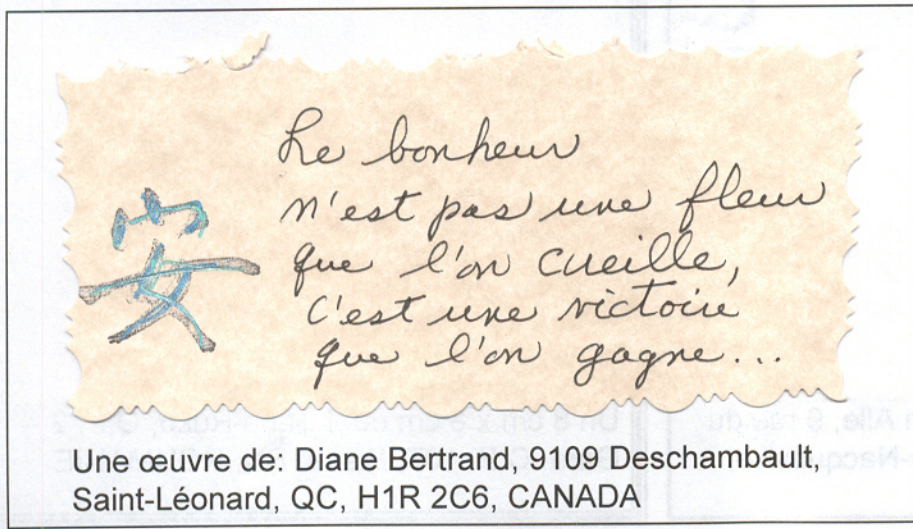 Le bonheur
n'est pas une fleur
que l'on cueille,
c'est une victoire
que l'on gagne...
安
Une œuvre de: Diane Bertrand, 9109 Deschambault,
Saint-Léonard, QC, H1R 2C6, CANADA